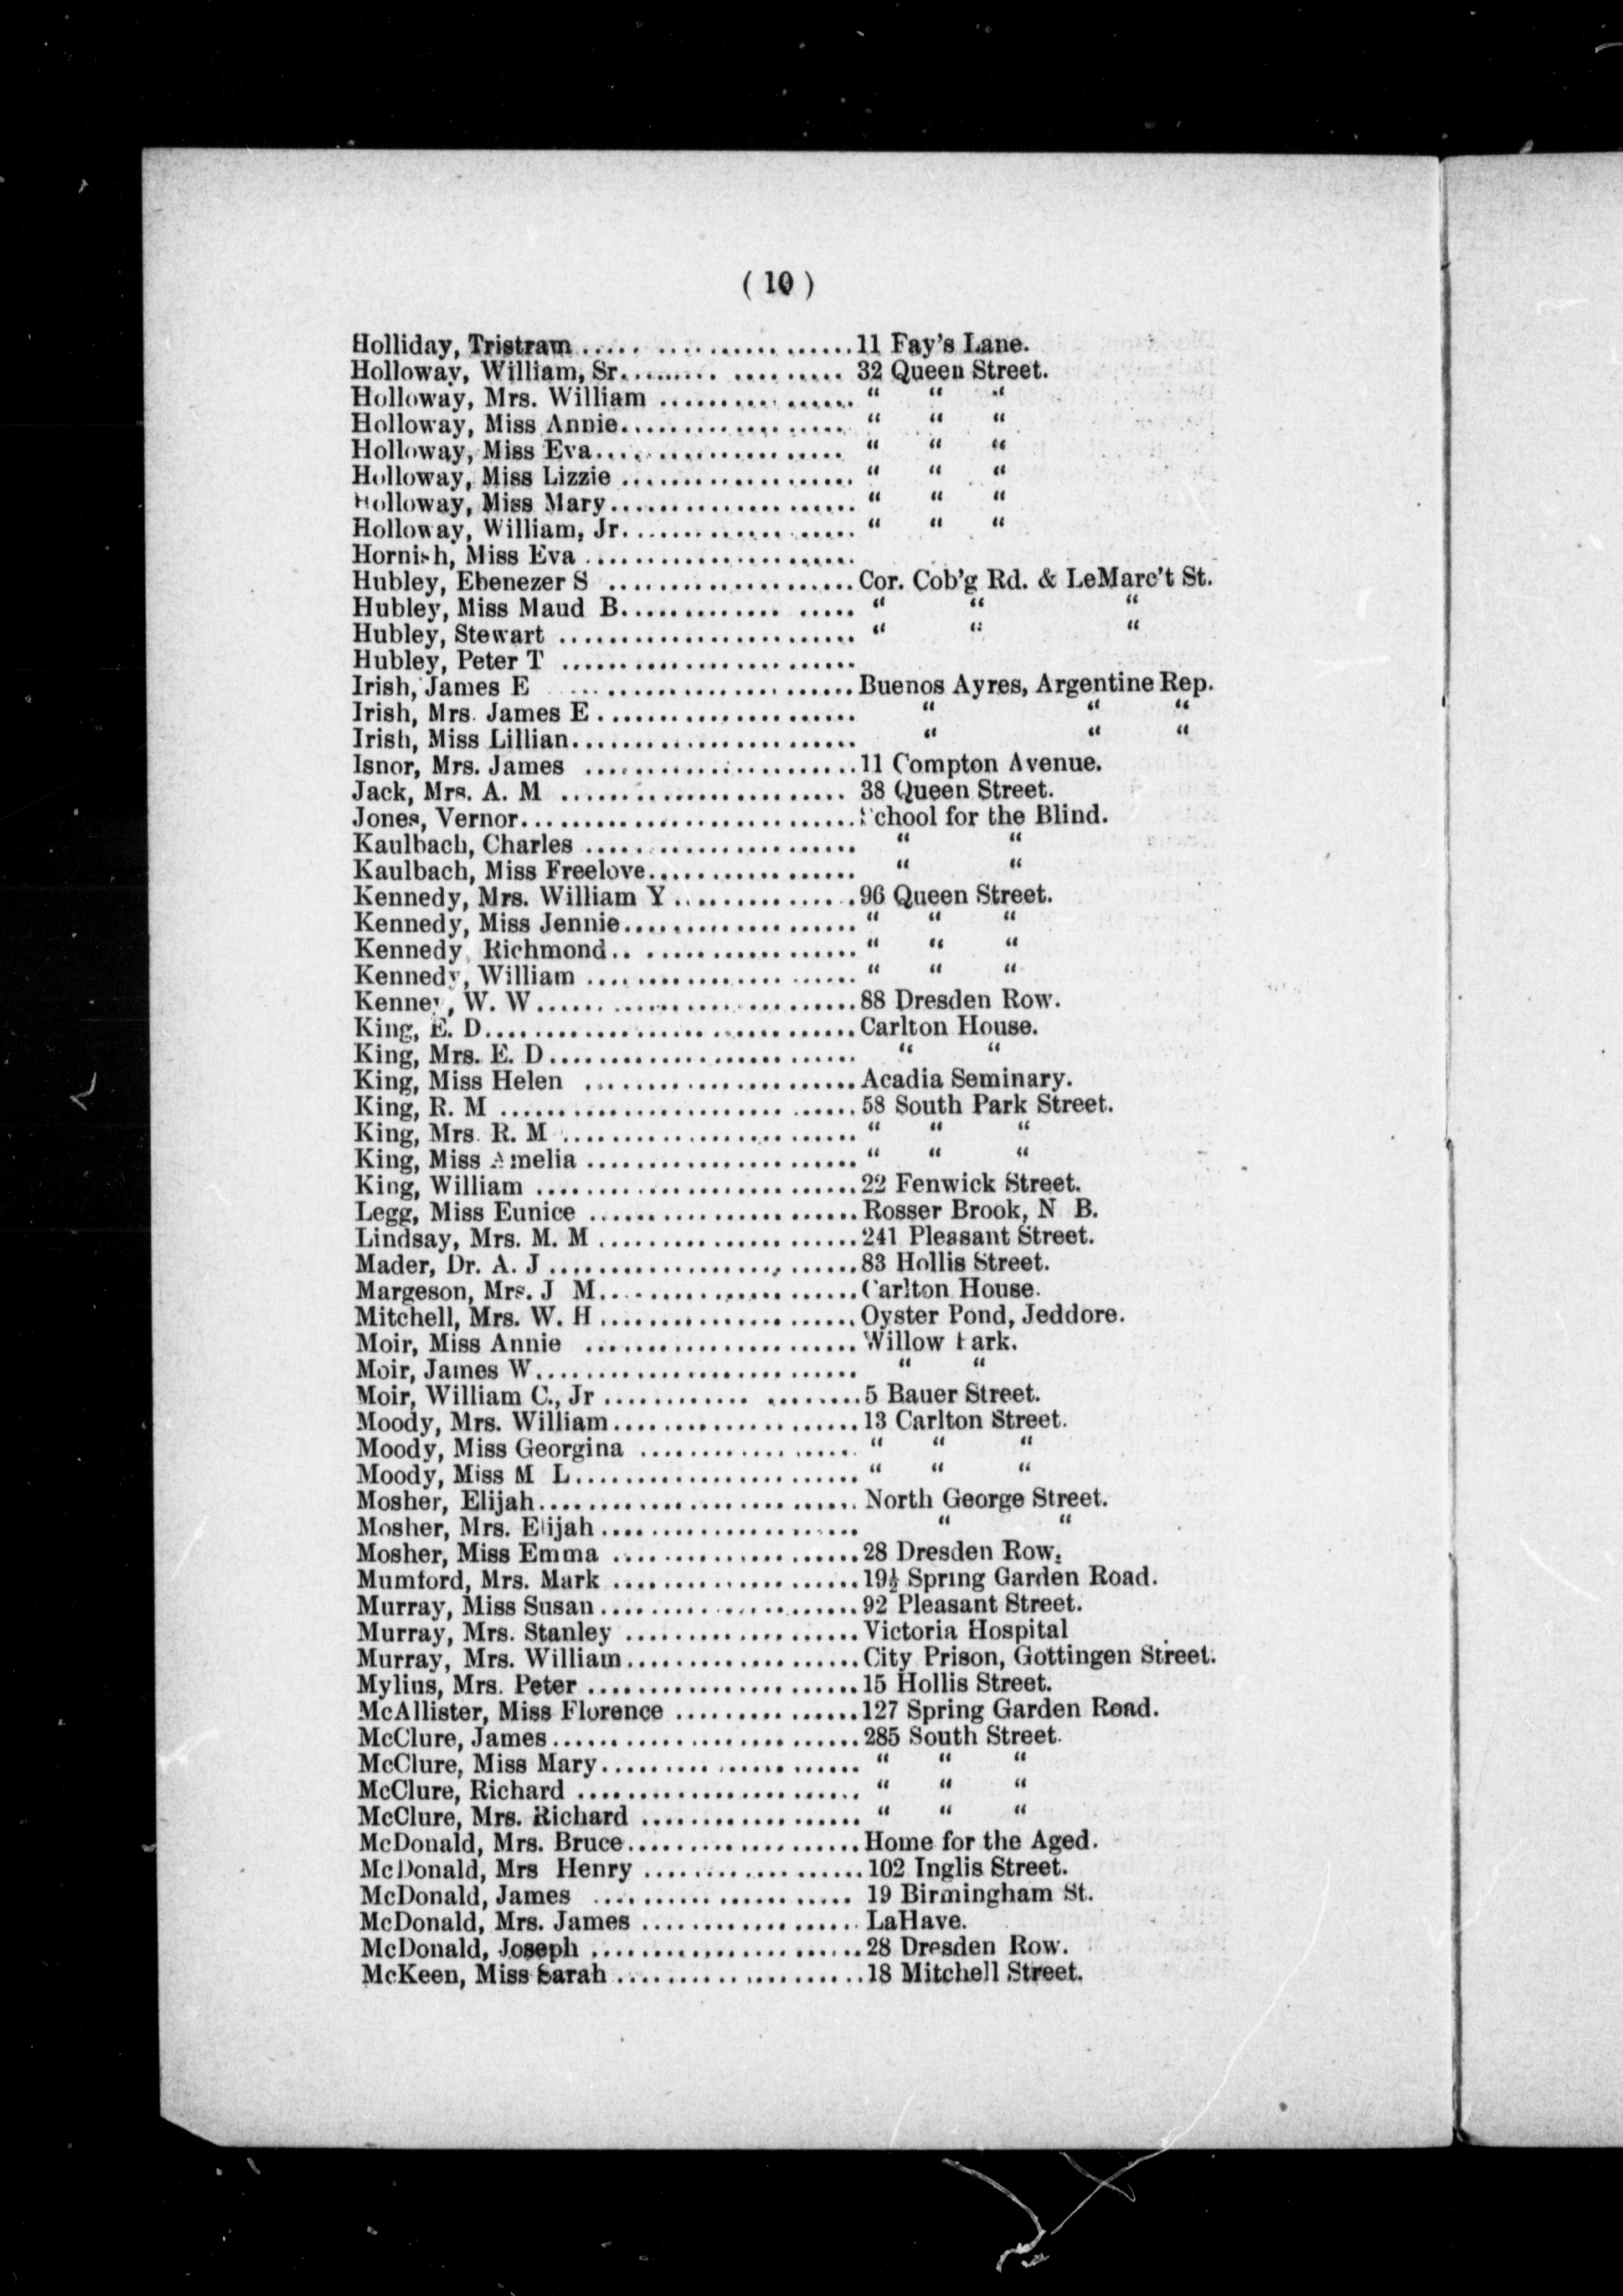 ( 10 )
Holliday, Tristram ..... 11 Fay's Lane.
Holloway, William, Sr..... 32 Queen Street.
Holloway, Mrs. William ..... " " "
Holloway, Miss Annie..... " " "
Holloway, Miss Eva..... " " "
Holloway, Miss Lizzie ..... " " "
Holloway, Miss Mary..... " " "
Holloway, William, Jr..... " " "
Hornish, Miss Eva .....
Hubley, Ebenezer S ..... Cor. Cob'g Rd. & LeMarc't St.
Hubley, Miss Maud B..... " " "
Hubley, Stewart ..... " " "
Hubley, Peter T .....
Irish, James E ..... Buenos Ayres, Argentine Rep.
Irish, Mrs. James E..... " " "
Irish, Miss Lillian..... " " "
Isnor, Mrs. James ..... 11 Compton Avenue.
Jack, Mrs. A. M ..... 38 Queen Street.
Jones, Vernor..... School for the Blind.
Kaulbach, Charles ..... " "
Kaulbach, Miss Freelove..... " "
Kennedy, Mrs. William Y ..... 96 Queen Street.
Kennedy, Miss Jennie..... " " "
Kennedy, Richmond..... " " "
Kennedy, William ..... " " "
Kenney, W. W..... 88 Dresden Row.
King, E. D..... Carlton House.
King, Mrs. E. D..... " "
King, Miss Helen ..... Acadia Seminary.
King, R. M ..... 58 South Park Street.
King, Mrs. R. M ..... " " "
King, Miss Amelia ..... " " "
King, William ..... 22 Fenwick Street.
Legg, Miss Eunice ..... Rosser Brook, N B.
Lindsay, Mrs. M. M ..... 241 Pleasant Street.
Mader, Dr. A. J ..... 83 Hollis Street.
Margeson, Mrs. J M..... Carlton House.
Mitchell, Mrs. W. H ..... Oyster Pond, Jeddore.
Moir, Miss Annie ..... Willow Park.
Moir, James W..... " "
Moir, William C., Jr ..... 5 Bauer Street.
Moody, Mrs. William..... 13 Carlton Street.
Moody, Miss Georgina ..... " " "
Moody, Miss M L..... " " "
Mosher, Elijah..... North George Street.
Mosher, Mrs. Elijah..... " "
Mosher, Miss Emma ..... 28 Dresden Row.
Mumford, Mrs. Mark ..... 19½ Spring Garden Road.
Murray, Miss Susan..... 92 Pleasant Street.
Murray, Mrs. Stanley ..... Victoria Hospital
Murray, Mrs. William..... City Prison, Gottingen Street.
Mylius, Mrs. Peter ..... 15 Hollis Street.
McAllister, Miss Florence ..... 127 Spring Garden Road.
McClure, James..... 285 South Street.
McClure, Miss Mary..... " " "
McClure, Richard ..... " " "
McClure, Mrs. Richard ..... " " "
McDonald, Mrs. Bruce..... Home for the Aged.
McDonald, Mrs Henry ..... 102 Inglis Street.
McDonald, James ..... 19 Birmingham St.
McDonald, Mrs. James ..... LaHave.
McDonald, Joseph ..... 28 Dresden Row.
McKeen, Miss Sarah ..... 18 Mitchell Street.